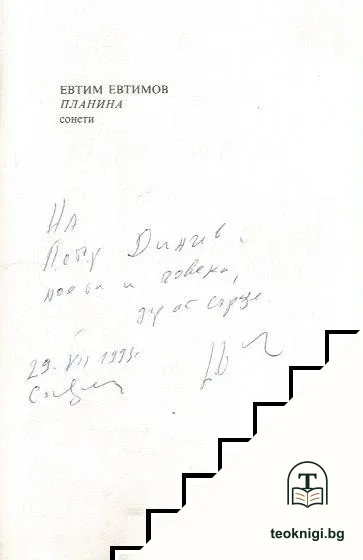 ЕВТИМ ЕВТИМОВ
ПЛАНИНА
сонети
На
Петър Динчев,
поета и човека,
от сърце
29. VII 1993г.
T
teoknigi.bg